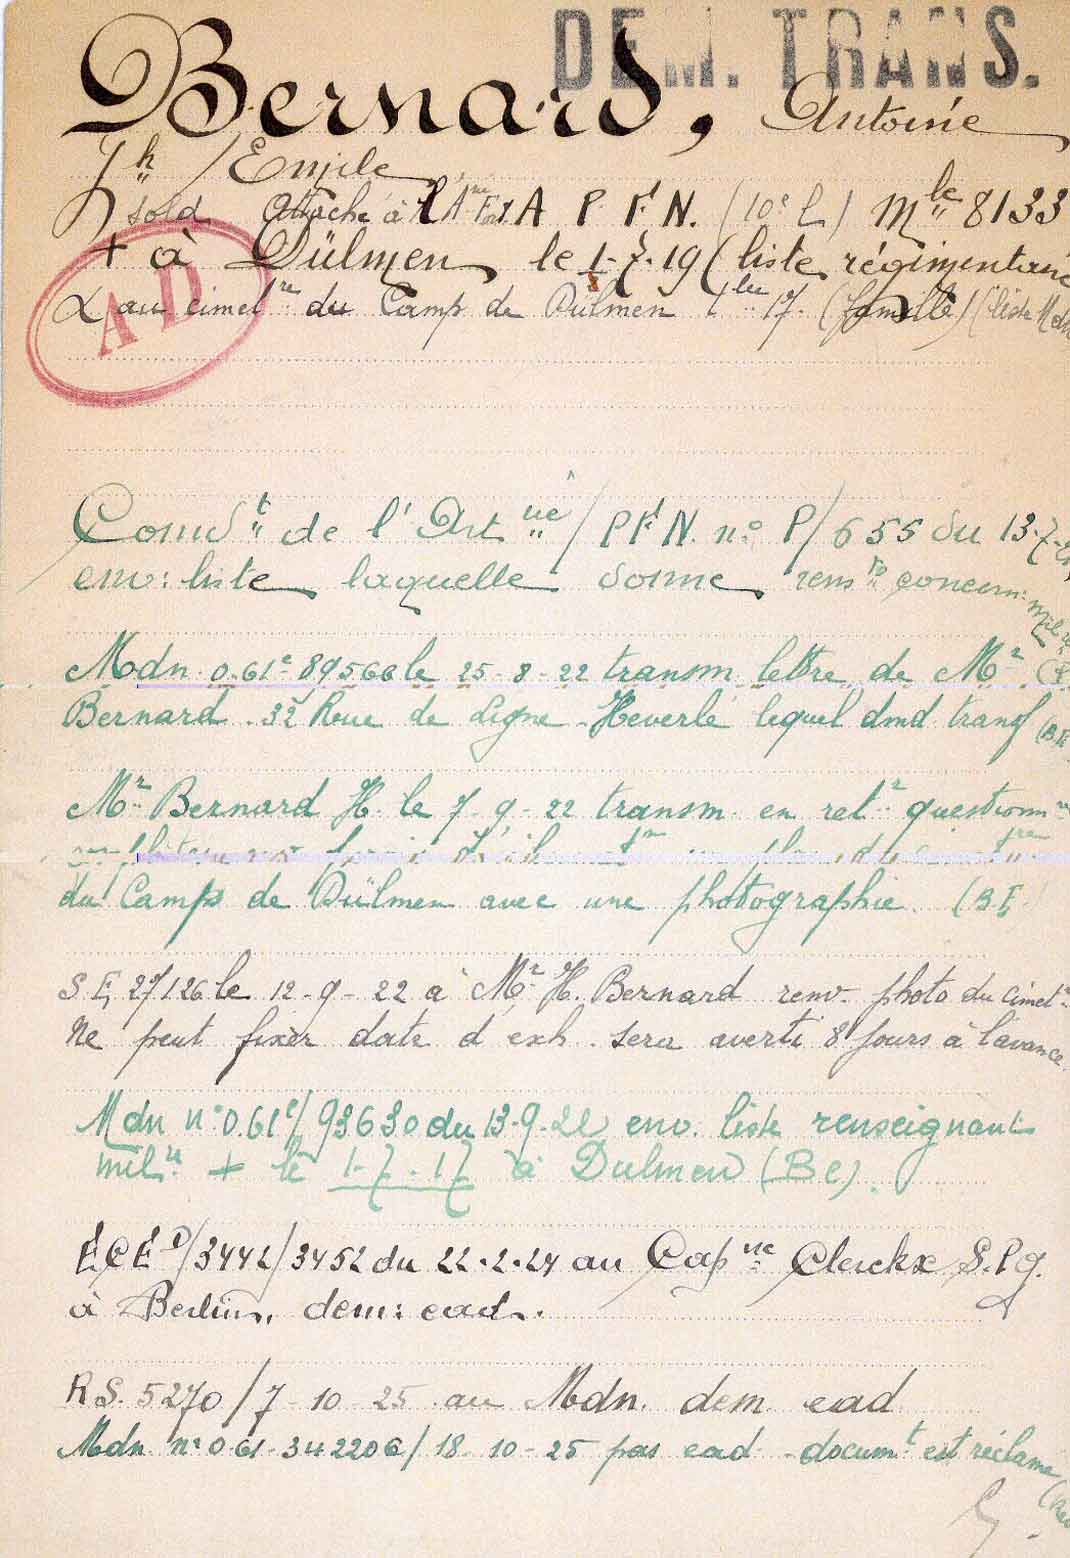 DEM. TRANS.
Bernard, Antoine
Jh / Emile
sold attaché à l'A A P Ft N. (10e L) Mle 8133
+ à Dülmen le 1-7-19 (liste régimentaire
AD
au cimetre du Camp de Dülmen 17. (famille) (liste Mdn
Comdt de l'Artie / P Ft N. n° P/655 du 13-7-
env: liste laquelle donne rensts concern: mil
Mdn 0.61e 89566 le 25-8-22 transm lettre de Mr
Bernard. 32 Rue de Ligne - Heverlé lequel dmd transf
Mr Bernard H. le 7-9-22 transm en ret questionn
du Camps de Dülmen avec une photographie (B.E.
S.E. 27126 le 12-9-22 à Mr H. Bernard renv. photo du cimet
ne peut fixer date d'exh. sera averti 8 jours à l'avance
Mdn n° 0.61e/93630 du 13-9-22 env. liste renseignant
milre + le 1-7-17 à Dulmen (Be).
ECE D/3442/3452 du 22-2-24 au Capne Clerckx S.P.G.
à Berlin, dem: ead.
RS. 5270/7-10-25 au Mdn. dem ead
Mdn n° 061-342206/18-10-25 pas ead - documt est réclamé